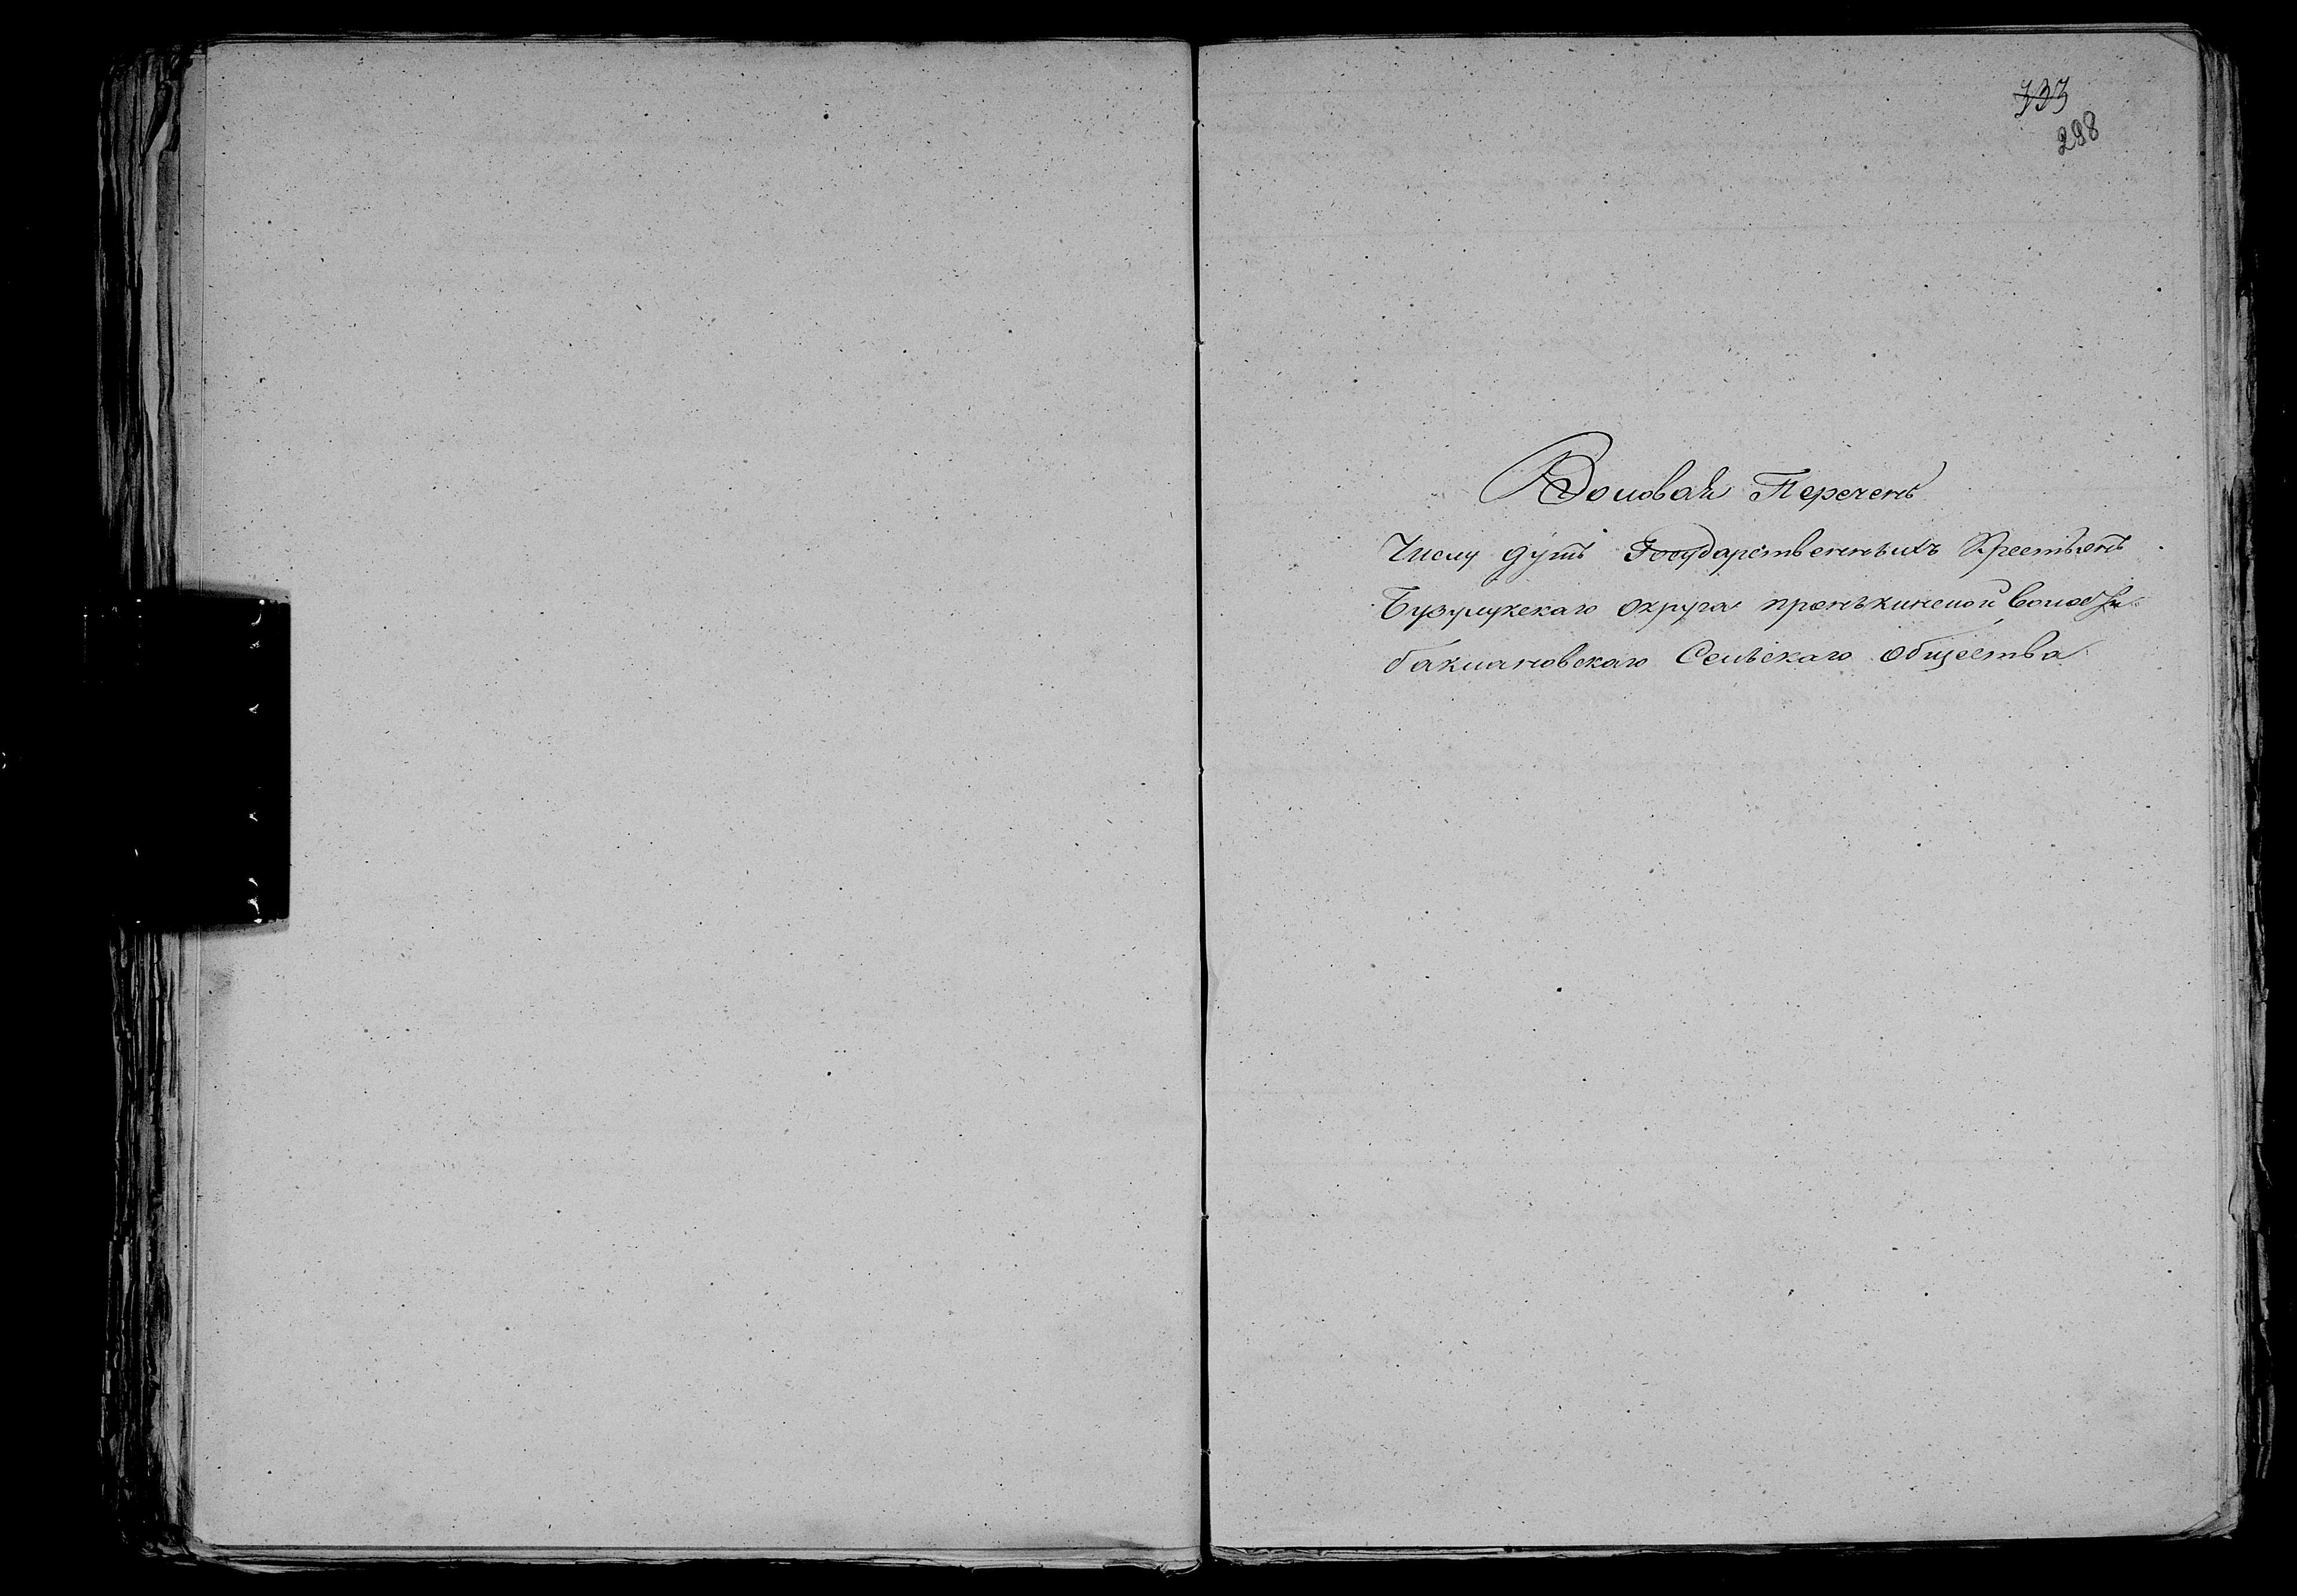 333
298
Воловай Перечень
Числу душъ Государственныхъ Крестьянъ
Бузулукскаго округа пронькинской волости
баклановскаго Сельскаго общества